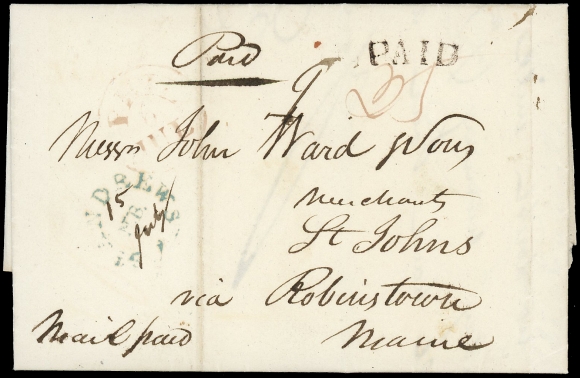 Paid
PAID
25
Messrs John Ward & Sons
Merchants
St Johns
via Robinstown
Maine
Mail paid
15
July